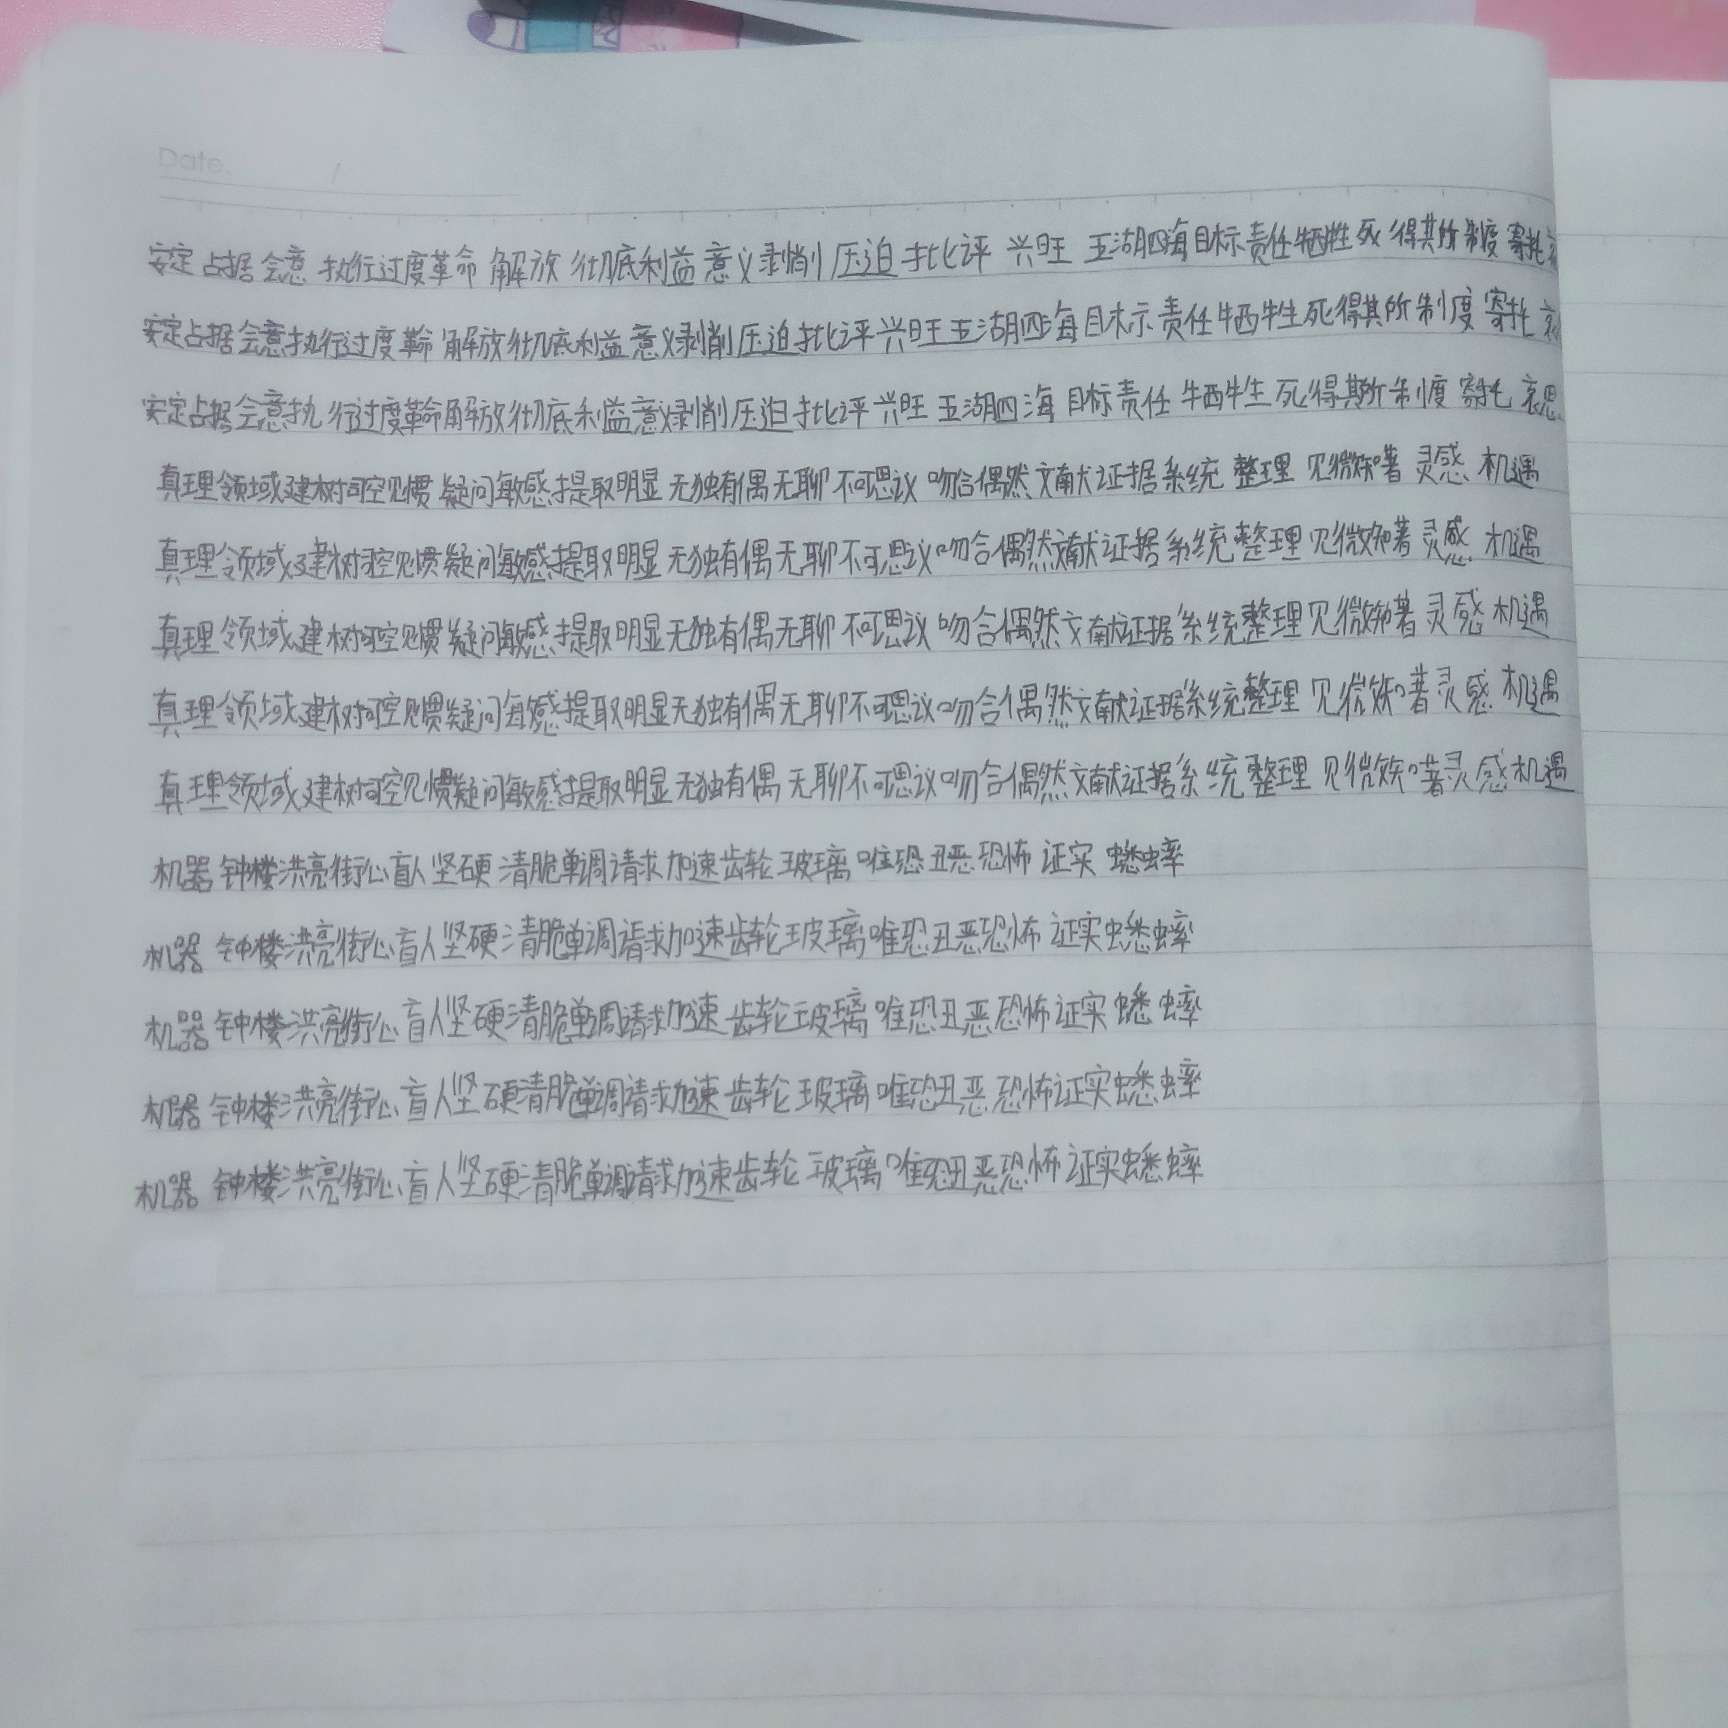 Date.
安定 占据 会意 执行过度革命 解放 彻底利益意义剥削 压迫 批评 兴旺 五湖四海目标责任牺牲死得其所制度 寄托
安定占据会意执行过度革命解放彻底利益意义剥削压迫批评兴旺五湖四海目标责任牺牲死得其所制度寄托
安定占据会意执行过度革命解放彻底利益意义剥削压迫批评兴旺五湖四海目标责任牺牲死得其所制度寄托哀思
真理领域建树司空见惯疑问敏感提取明显无独有偶无聊不可思议吻合偶然文献证据系统整理见微知著灵感机遇
真理领域建树司空见惯疑问敏感提取明显无独有偶无聊不可思议吻合偶然文献证据系统整理见微知著灵感机遇
真理领域建树司空见惯疑问敏感提取明显无独有偶无聊不可思议吻合偶然文献证据系统整理见微知著灵感机遇
真理领域建树司空见惯疑问敏感提取明显无独有偶无聊不可思议吻合偶然文献证据系统整理见微知著灵感机遇
真理领域建树司空见惯疑问敏感提取明显无独有偶无聊不可思议吻合偶然文献证据系统整理见微知著灵感机遇
机器钟楼洪亮街心盲人坚硬清脆单调请求加速齿轮玻璃唯恐丑恶恐怖证实蟋蟀
机器钟楼洪亮街心盲人坚硬清脆单调请求加速齿轮玻璃唯恐丑恶恐怖证实蟋蟀
机器钟楼洪亮街心盲人坚硬清脆单调请求加速齿轮玻璃唯恐丑恶恐怖证实蟋蟀
机器钟楼洪亮街心盲人坚硬清脆单调请求加速齿轮玻璃唯恐丑恶恐怖证实蟋蟀
机器钟楼洪亮街心盲人坚硬清脆单调请求加速齿轮玻璃唯恐丑恶恐怖证实蟋蟀